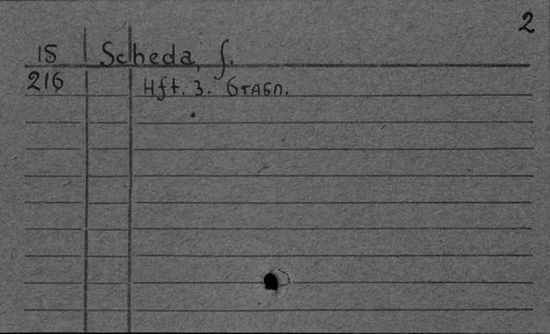 2
15 Scheda, f.
216 Hft. 3. GTAGN.